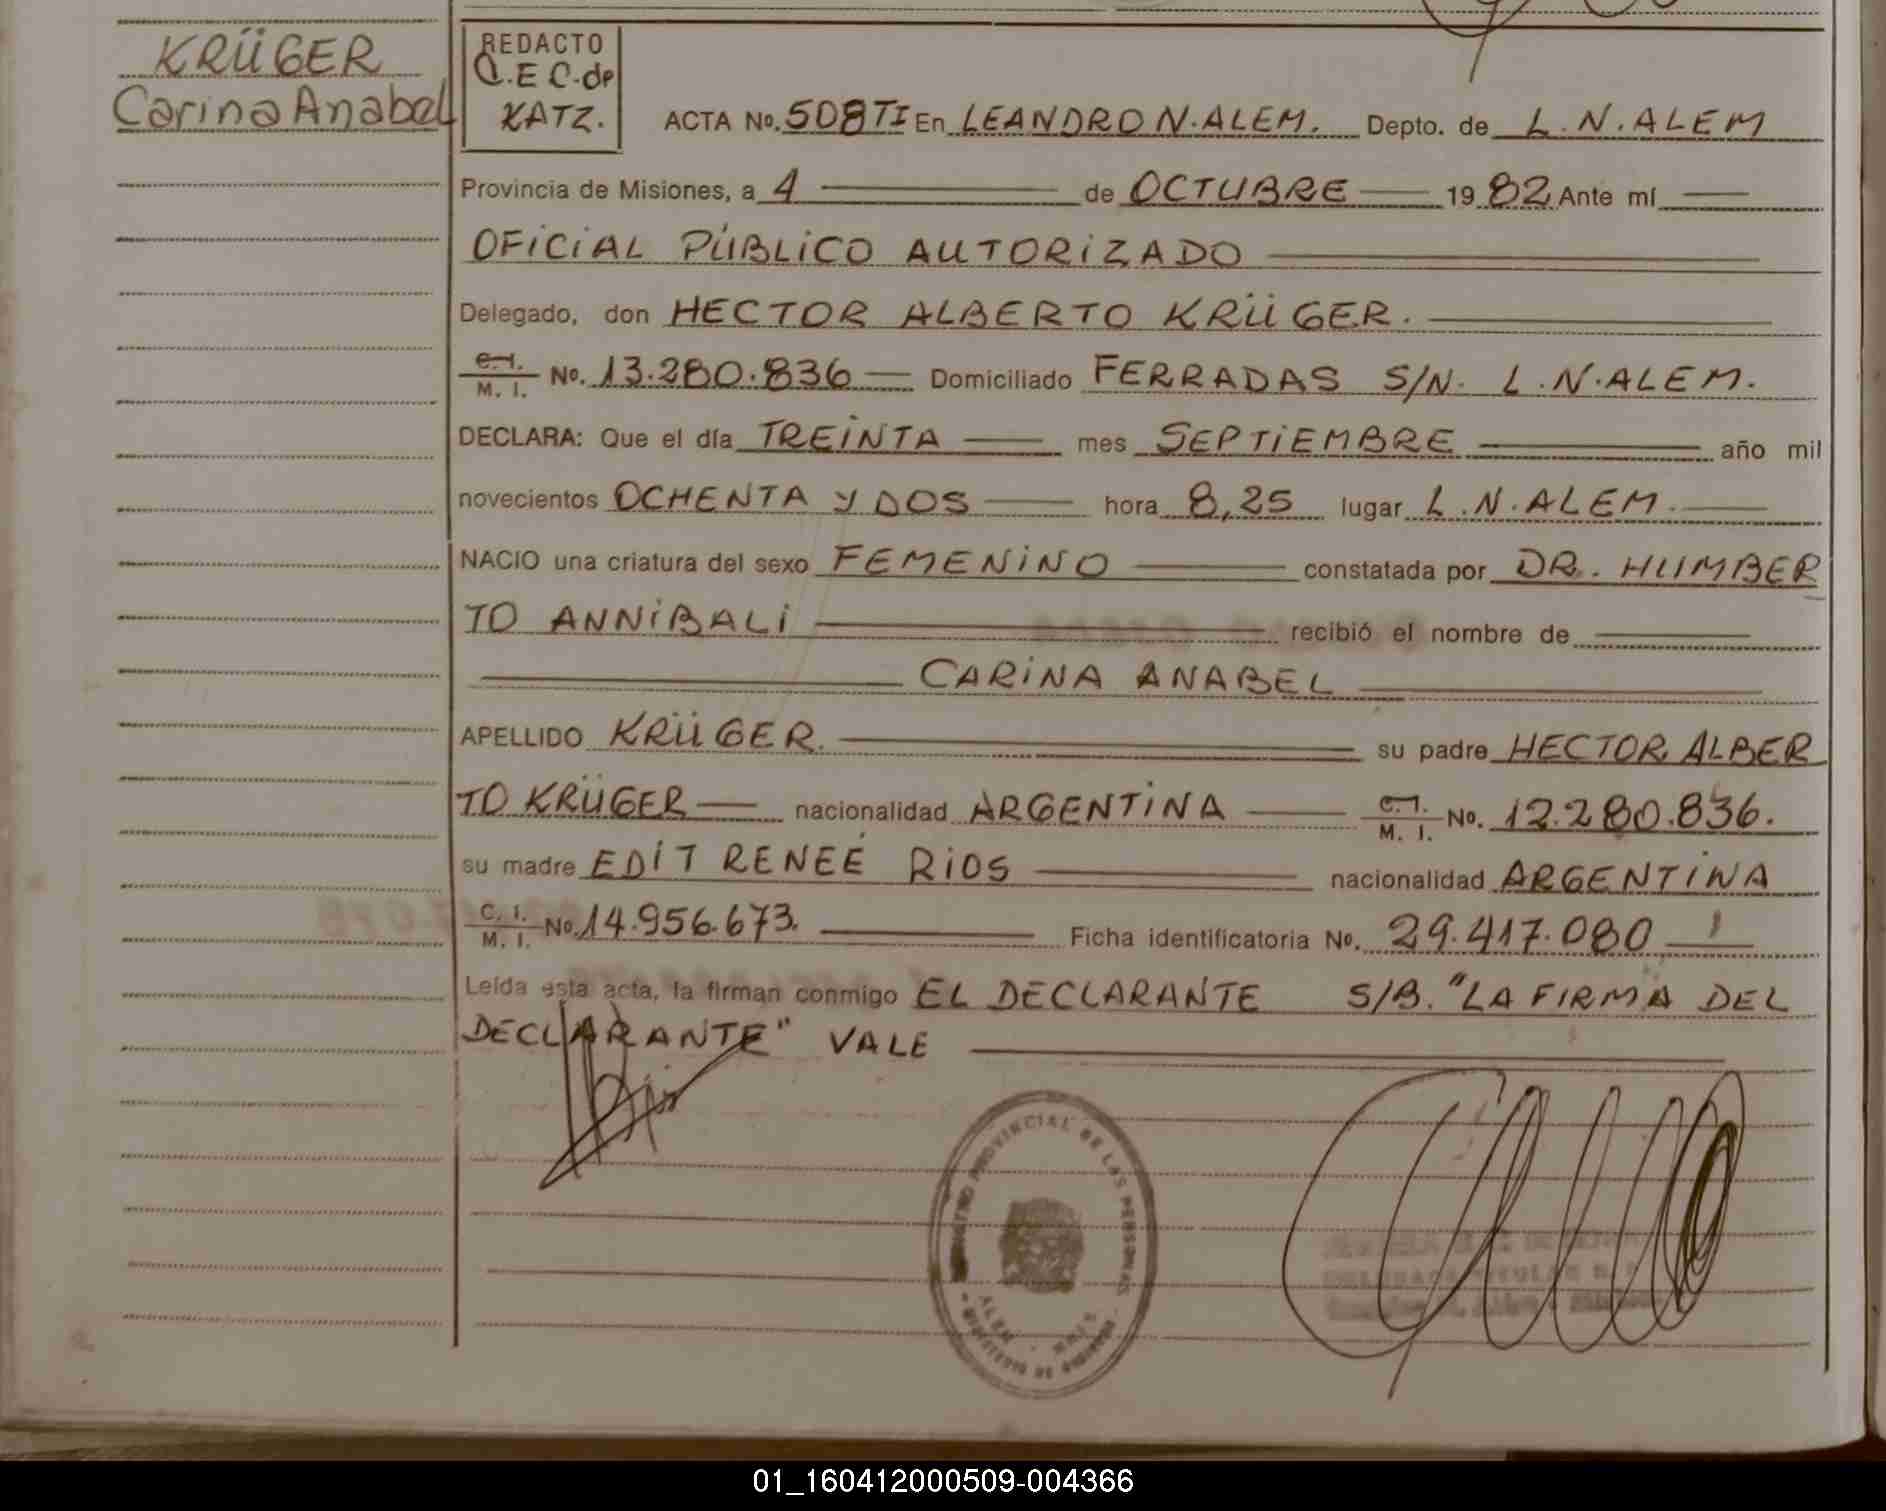 KRÜGER
Carina Anabel
REDACTO
C.E C. de
KATZ.
ACTA No. 508 TI En LEANDRO N. ALEM. Depto. de L. N. ALEM
Provincia de Misiones, a 4 de OCTUBRE 1982 Ante mí
OFICIAL PÚBLICO AUTORIZADO
Delegado, don HECTOR ALBERTO KRÜGER.
C. I. / M. I. No. 13.280.836 Domiciliado FERRADAS S/N. L.N.ALEM.
DECLARA: Que el día TREINTA mes SEPTIEMBRE año mil
novecientos OCHENTA Y DOS hora 8,25 lugar L.N.ALEM.
NACIO una criatura del sexo FEMENINO constatada por DR. HUMBER
TO ANNIBALI recibió el nombre de
CARINA ANABEL
APELLIDO KRÜGER. su padre HECTOR ALBER
TO KRÜGER nacionalidad ARGENTINA C. I. / M. I. No. 12.280.836.
su madre EDIT RENEÉ RIOS nacionalidad ARGENTINA
C. I. / M. I. No. 14.956.673. Ficha identificatoria No. 29.417.080
Leída esta acta, la firman conmigo EL DECLARANTE S/B. "LA FIRMA DEL
DECLARANTE" VALE
REGISTRO PROVINCIAL DE LAS PERSONAS
ALEM - MNES
01_160412000509-004366